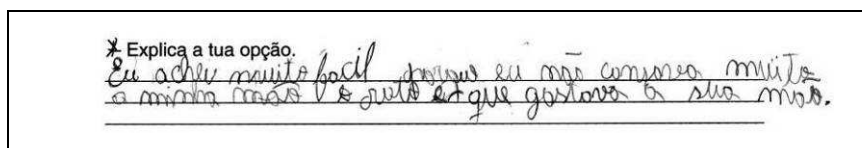 * Explica a tua opção.
Eu achei muito facil porque eu não cansava muito
a minha mão o rato é que gastava a sua mão.